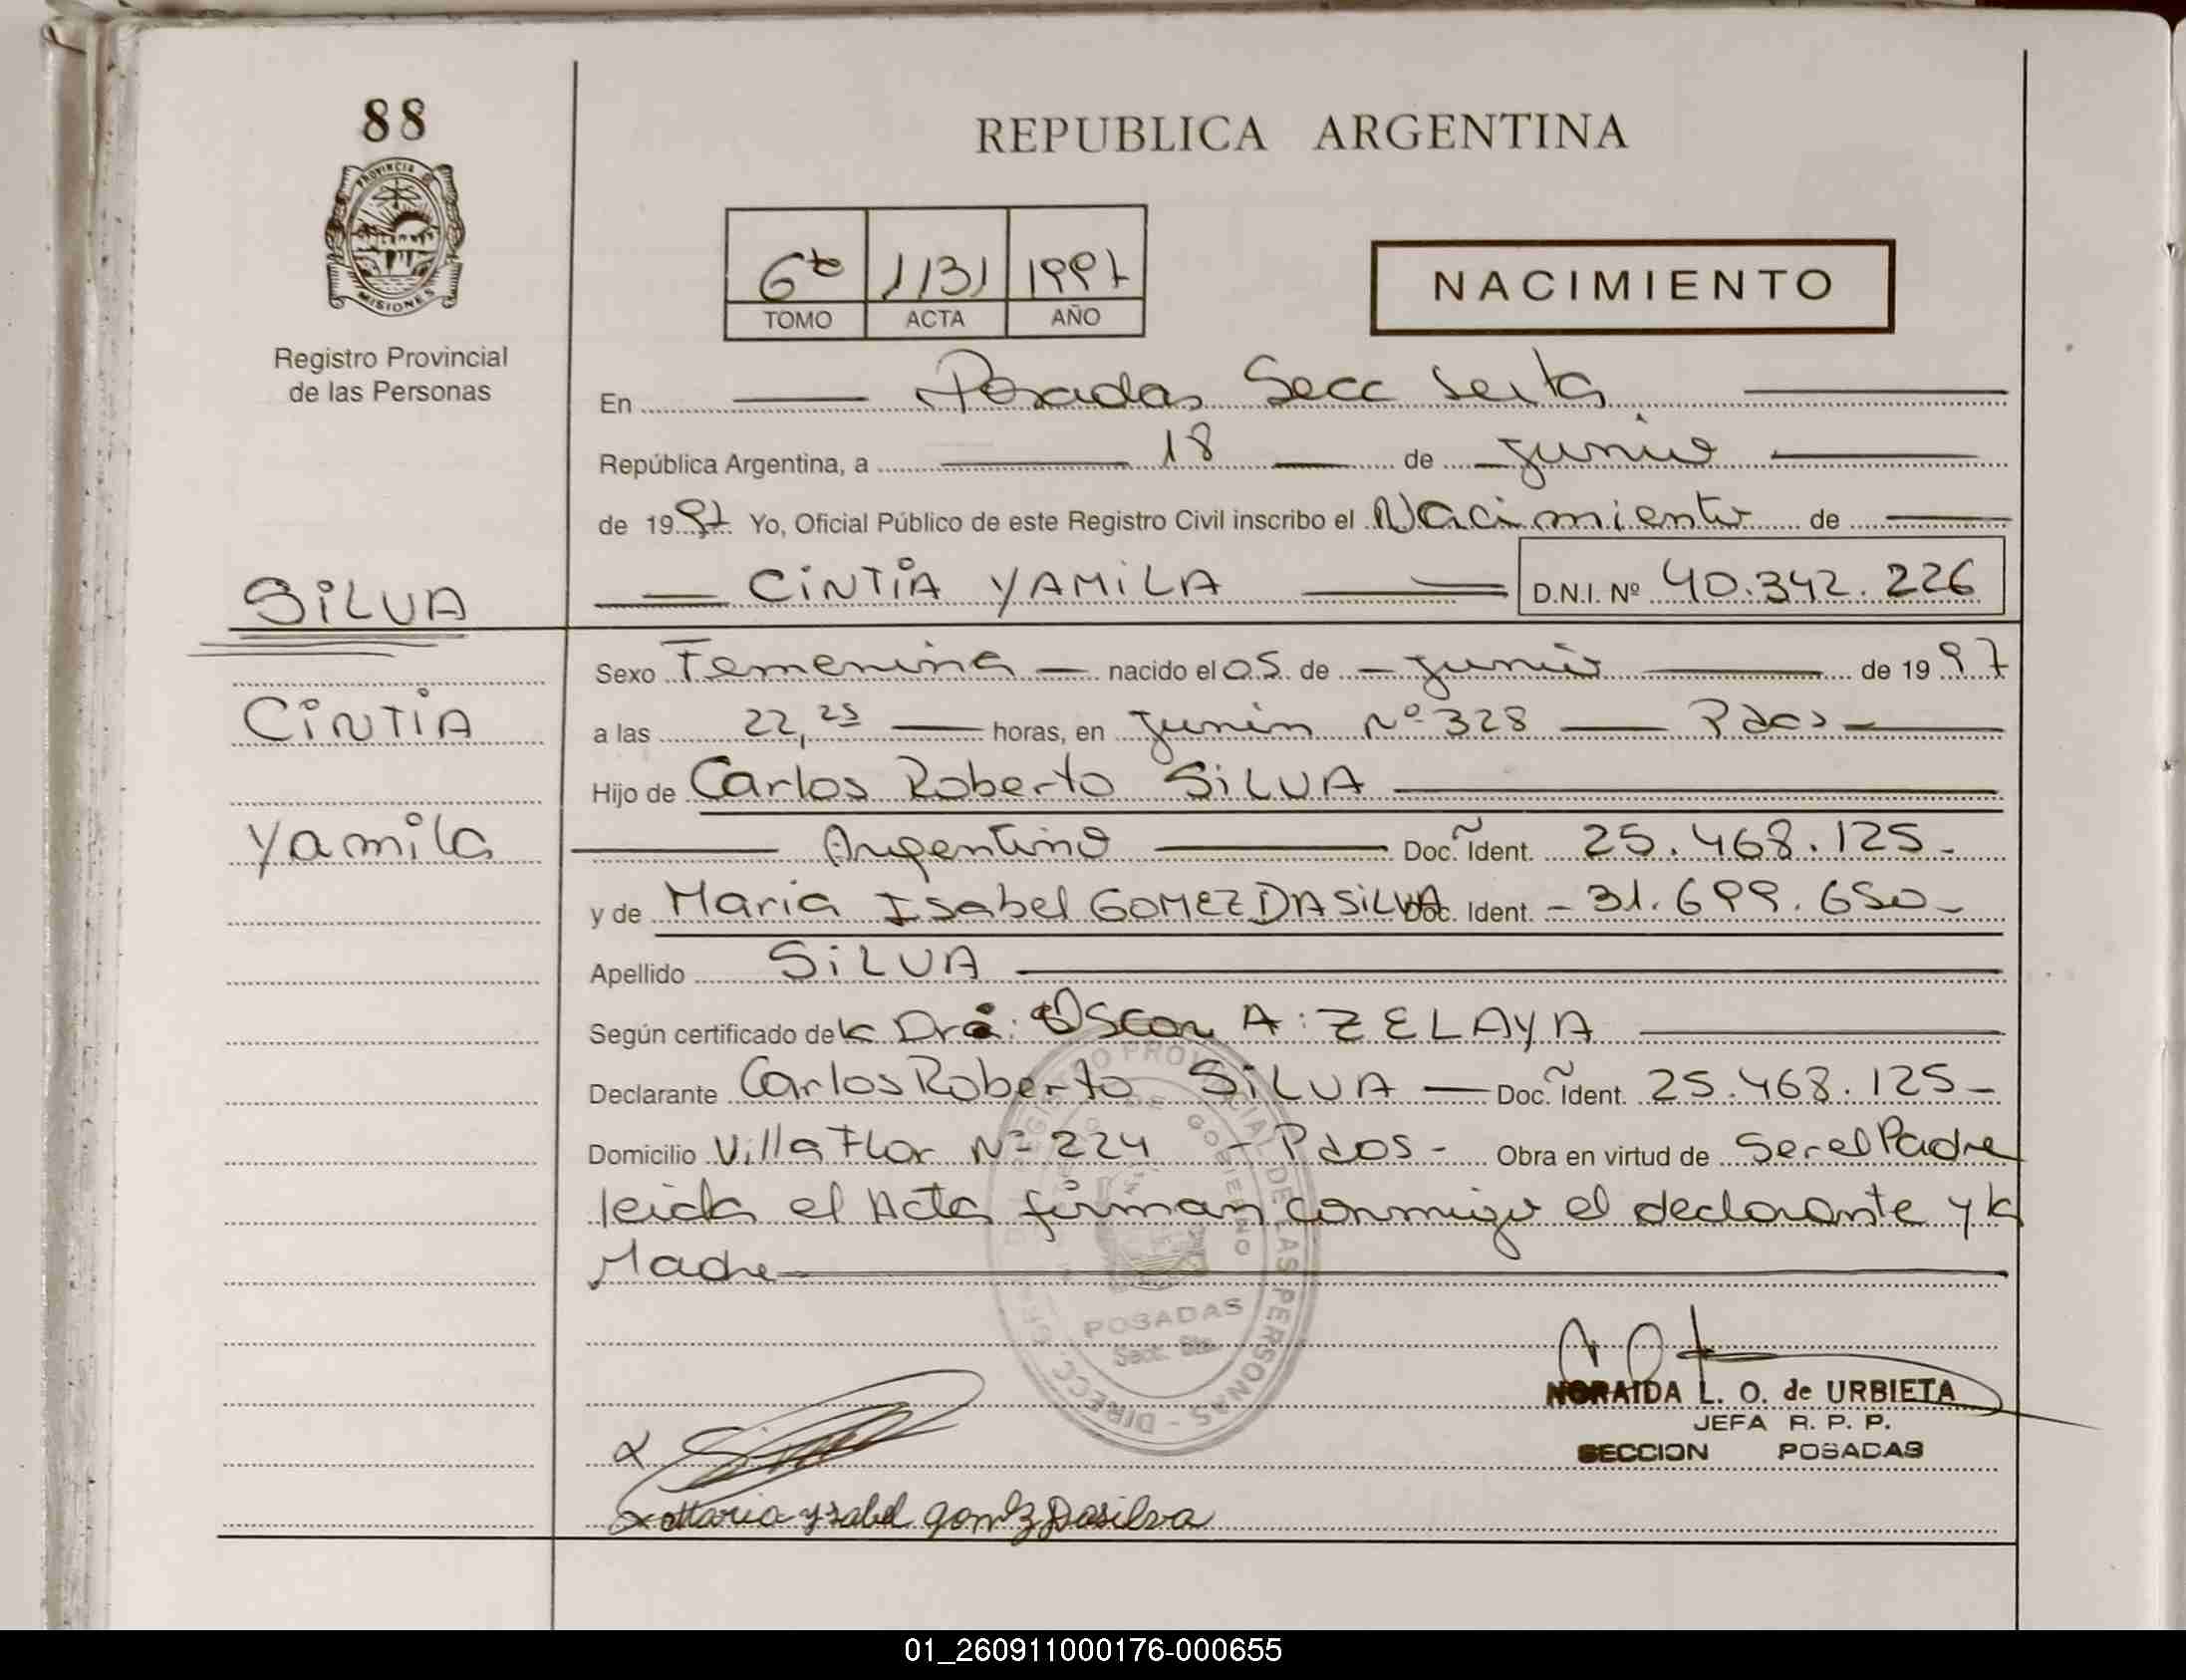 88
REPUBLICA ARGENTINA
PROVINCIA
MISIONES
6to 1131 1997
TOMO ACTA AÑO
NACIMIENTO
Registro Provincial
de las Personas
En Posadas Secc Sexta
República Argentina, a 18 de junio
de 1997 Yo, Oficial Público de este Registro Civil inscribo el Nacimiento de
SiLVA
CiNTiA YAMiLA D.N.I. Nº 40.342.226
Sexo Femenina nacido el 05 de junio de 1997
CiNTiA
a las 22,25 horas, en Junín Nº 328 Pdas
Hijo de Carlos Roberto SiLVA
Yamila
Argentino Doc. Ident. 25.468.125-
y de Maria Isabel GOMEZ DA SiLVA Doc. Ident. - 31.699.650-
Apellido SiLVA
Según certificado de Oscar A: ZELAYA
Declarante Carlos Roberto SiLVA Doc. Ident. 25.468.125-
Domicilio Villa Flor Nº 224 - Pdas - Obra en virtud de Ser el Padre
leida el Acta firman conmigo el declarante y la
Madre
DIRECC. REGISTRO PROVINCIAL DE LAS PERSONAS
DE GOBIERNO
POSADAS
Secc. 6ta.
NORAIDA L. O. de URBIETA
JEFA R. P. P.
SECCION POSADAS
x Maria ysabel gomez Dasilva
01_260911000176-000655